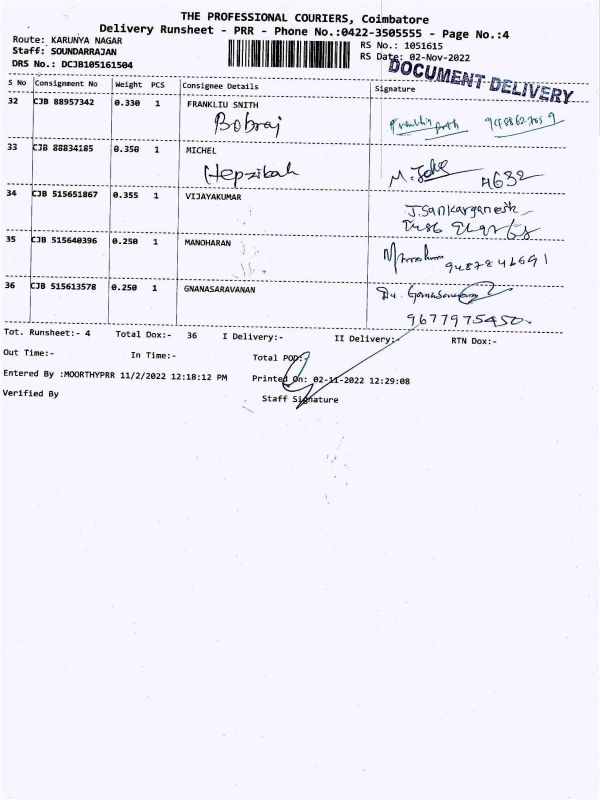 THE PROFESSIONAL COURIERS, Coimbatore
Delivery Runsheet - PRR - Phone No.:0422-3505555 - Page No.:4
Route: KARUNYA NAGAR
RS No.: 1051615
Staff: SOUNDARRAJAN
RS Date: 02-Nov-2022
DRS No.: DCJB105161504
DOCUMENT DELIVERY
S No Consignment No Weight PCS Consignee Details Signature
32 CJB 88957342 0.330 1 FRANKLIU SNITH
Bobraj
33 CJB 88834185 0.350 1 MICHEL
Hepzibah 4632
34 CJB 515651867 0.355 1 VIJAYAKUMAR
J. Sankarganesh
35 CJB 515640396 0.250 1 MANOHARAN
36 CJB 515613578 0.250 1 GNANASARAVANAN
9677975450
Tot. Runsheet:- 4 Total Dox:- 36 I Delivery:- II Delivery:- RTN Dox:-
Out Time:- In Time:- Total POD:-
Entered By :MOORTHYPRR 11/2/2022 12:18:12 PM Printed On: 02-11-2022 12:29:08
Verified By Staff Signature